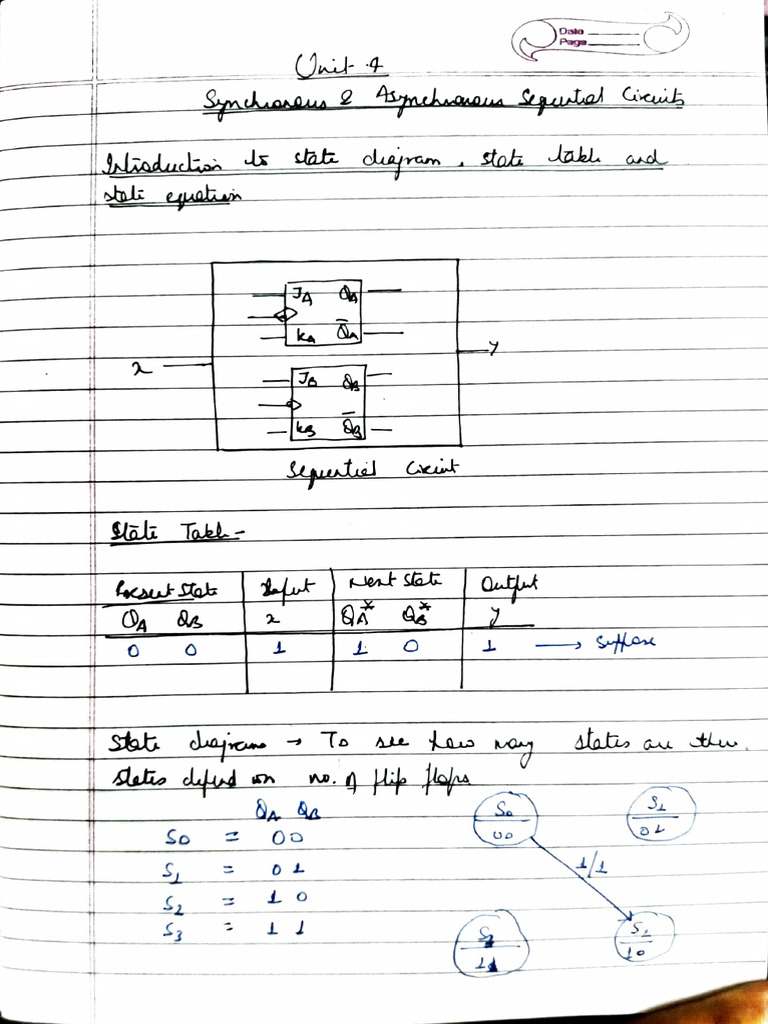 Date
Page
Unit-4
Synchronous & Asynchronous Sequential Circuits
Introduction to state diagram, state table and
state equation
JA QA
KA Q̅A
x
y
JB QB
KB Q̅B
Sequential Circuit
State Table-
Present State Input Next State Output
QA QB x QA* QB* y
0 0 1 1 0 1 → Suppose
State diagrams → To see how many states are there.
states depend on no. of flip flops
QA QB
S0 = 00
S1 = 01
S2 = 10
S3 = 11
S0 S1
00 01
1/1
S3 S1
11 10